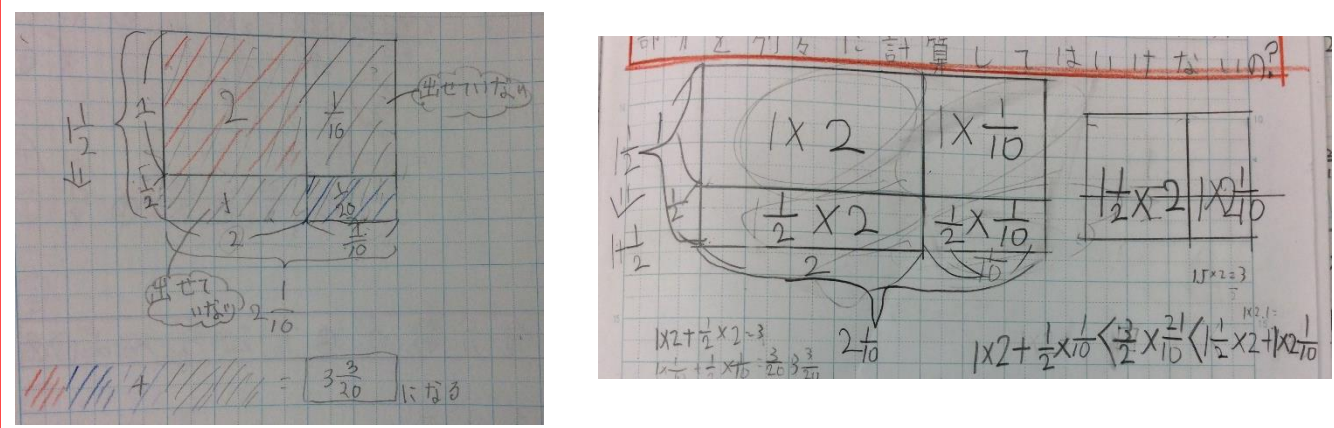 1 1/2
1
1/2
2
1/10
出せていない
1
1/20
2
1/10
出せて
いない
2 1/10
+ = 3 3/20 になる
に計算してはいけないの?
1 1/2
1
1/2
1+1/2
1×2
1×1/10
1/2×2
1/2×1/10
2
1/10
2 1/10
1 1/2×2
1×2 1/10
1×2+1/2×2=3
1×2+1/2×1/10<3/2×21/10<1 1/2×2+1×2 1/10